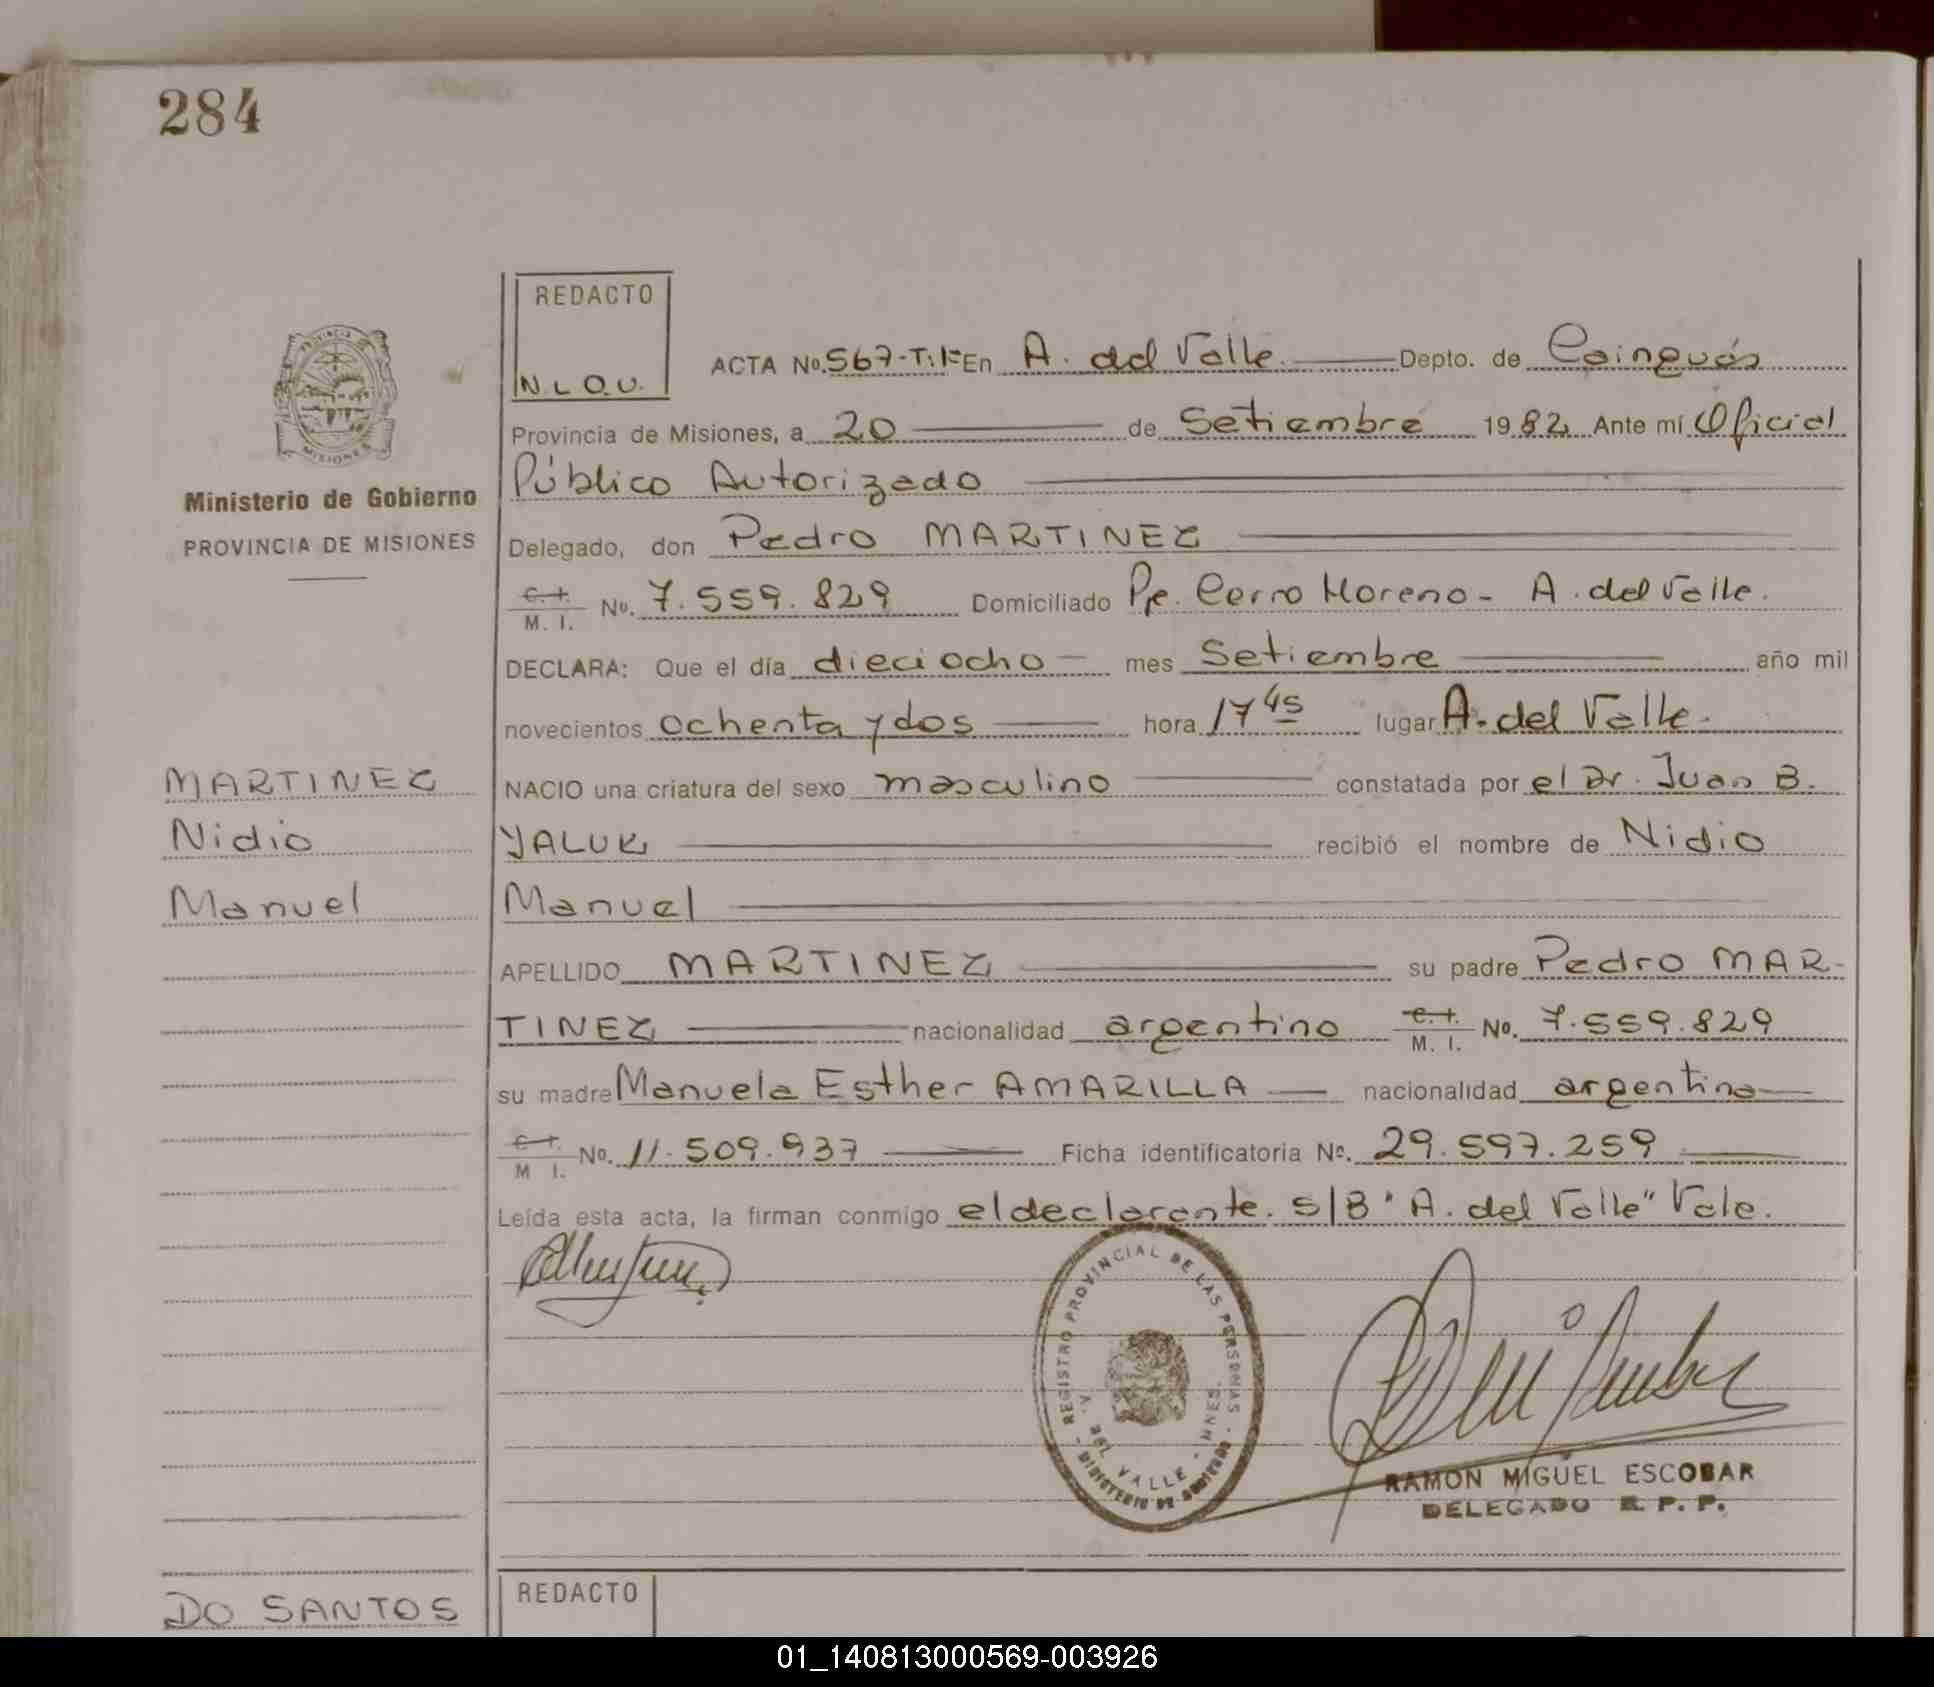 284
REDACTO
N.L.O.U.
ACTA No. 567-T:1º En A. del Valle Depto. de Cainguás
Provincia de Misiones, a 20 de Setiembre 1982 Ante mí Oficial
Público Autorizado
Ministerio de Gobierno
PROVINCIA DE MISIONES
Delegado, don Pedro MARTINEZ
C. I.
M. I. No. 7.559.829 Domiciliado Pje. Cerro Moreno - A. del Valle.
DECLARA: Que el día dieciocho mes Setiembre año mil
novecientos ochenta y dos hora 17 45 lugar A. del Valle.
MARTINEZ
Nidio
Manuel
NACIO una criatura del sexo masculino constatada por el Dr. Juan B.
YALUK recibió el nombre de Nidio
Manuel
APELLIDO MARTINEZ su padre Pedro MAR-
TINEZ nacionalidad argentino C. I. M. I. No. 7.559.829
su madre Manuela Esther AMARILLA nacionalidad argentina
C. I. M I. No. 11.509.937 Ficha identificatoria Nº. 29.597.259
Leída esta acta, la firman conmigo el declarante. S/B "A. del Valle" Vale.
REGISTRO PROVINCIAL DE LAS PERSONAS
A. DEL VALLE - MNES.
MINISTERIO DE GOBIERNO
RAMON MIGUEL ESCOBAR
DELEGADO R. P. P.
DO SANTOS
REDACTO
01_140813000569-003926